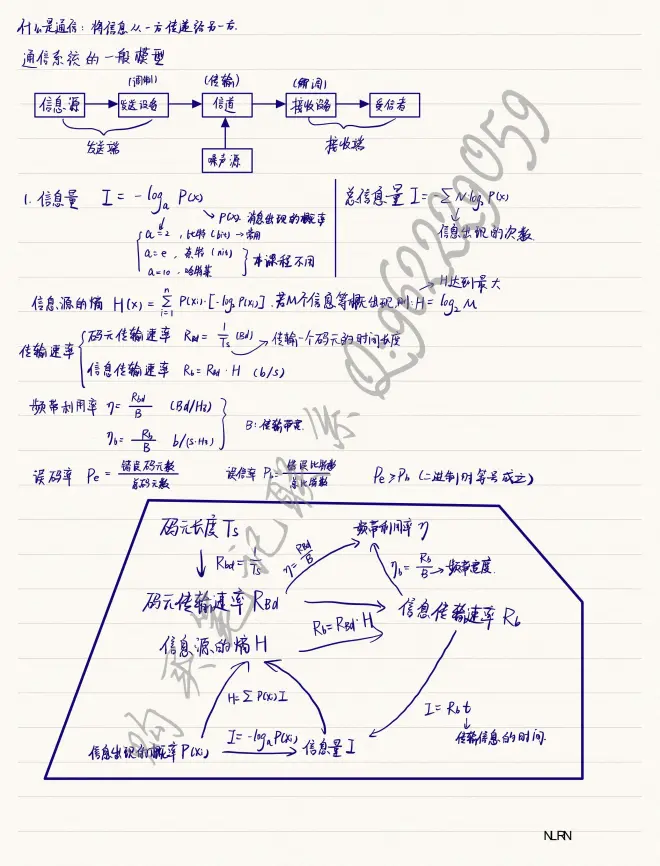 什么是通信：将信息从一方传递给另一方.
通信系统的一般模型
(调制) (传输) (解调)
信息源 发送设备 信道 接收设备 受信者
发送端 接收端
噪声源
1. 信息量 I = -logₐ P(x)
P(x) 消息出现的概率
a=2，比特(bit) → 常用
a=e，奈特(nit)
a=10，哈特莱
本课程不用
总信息量 I = ΣN log₂ P(x)
信息出现的次数
H达到最大
信息源的熵 H(x) = Σⁿᵢ₌₁ P(xᵢ)·[-log₂P(xᵢ)]. 若M个信息等概出现则: H = log₂M
传输速率
码元传输速率 R_Bd = 1/Ts (Bd) 传输一个码元的时间长度
信息传输速率 R_b = R_Bd · H (b/s)
频带利用率 η = R_Bd/B (Bd/Hz)
η_b = R_b/B b/(s·Hz)
B: 传输带宽
误码率 Pe = 错误码元数/总码元数 误信率 P_b = 错误比特数/总比特数 Pe > P_b (二进制时等号成立)
码元长度 Ts 频带利用率 η
R_Bd = 1/Ts η = R_Bd/B η_b = R_b/B → 频带宽度.
码元传输速率 R_Bd 信息传输速率 R_b
R_b = R_Bd · H
信息源的熵 H
H = Σ P(xᵢ) I
I = R_b t
传输信息的时间.
信息出现的概率 P(xᵢ) I = -logₐP(xᵢ) 信息量 I
购买笔记联系 Q:962229059
NLRN